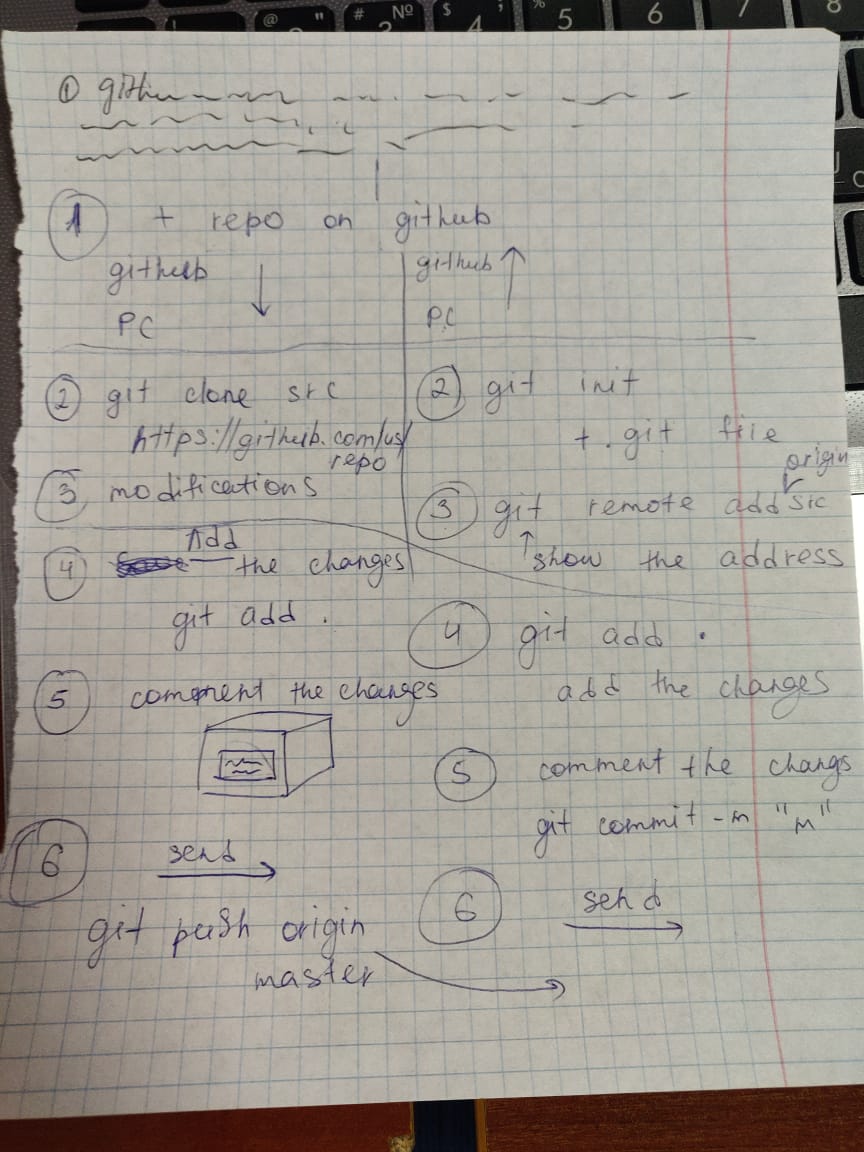 ① githu
1 + repo on github
github ↓
PC
github ↑
PC
② git clone src
https://github.com/us/
repo
③ modifications
④ Add the changes
git add .
⑤ comment the changes
⑥ send
git push origin
master
② git init
+ .git file
origin
③ git remote add src
↑ show the address
④ git add .
add the changes
⑤ comment the changs
git commit -m "m"
⑥ send